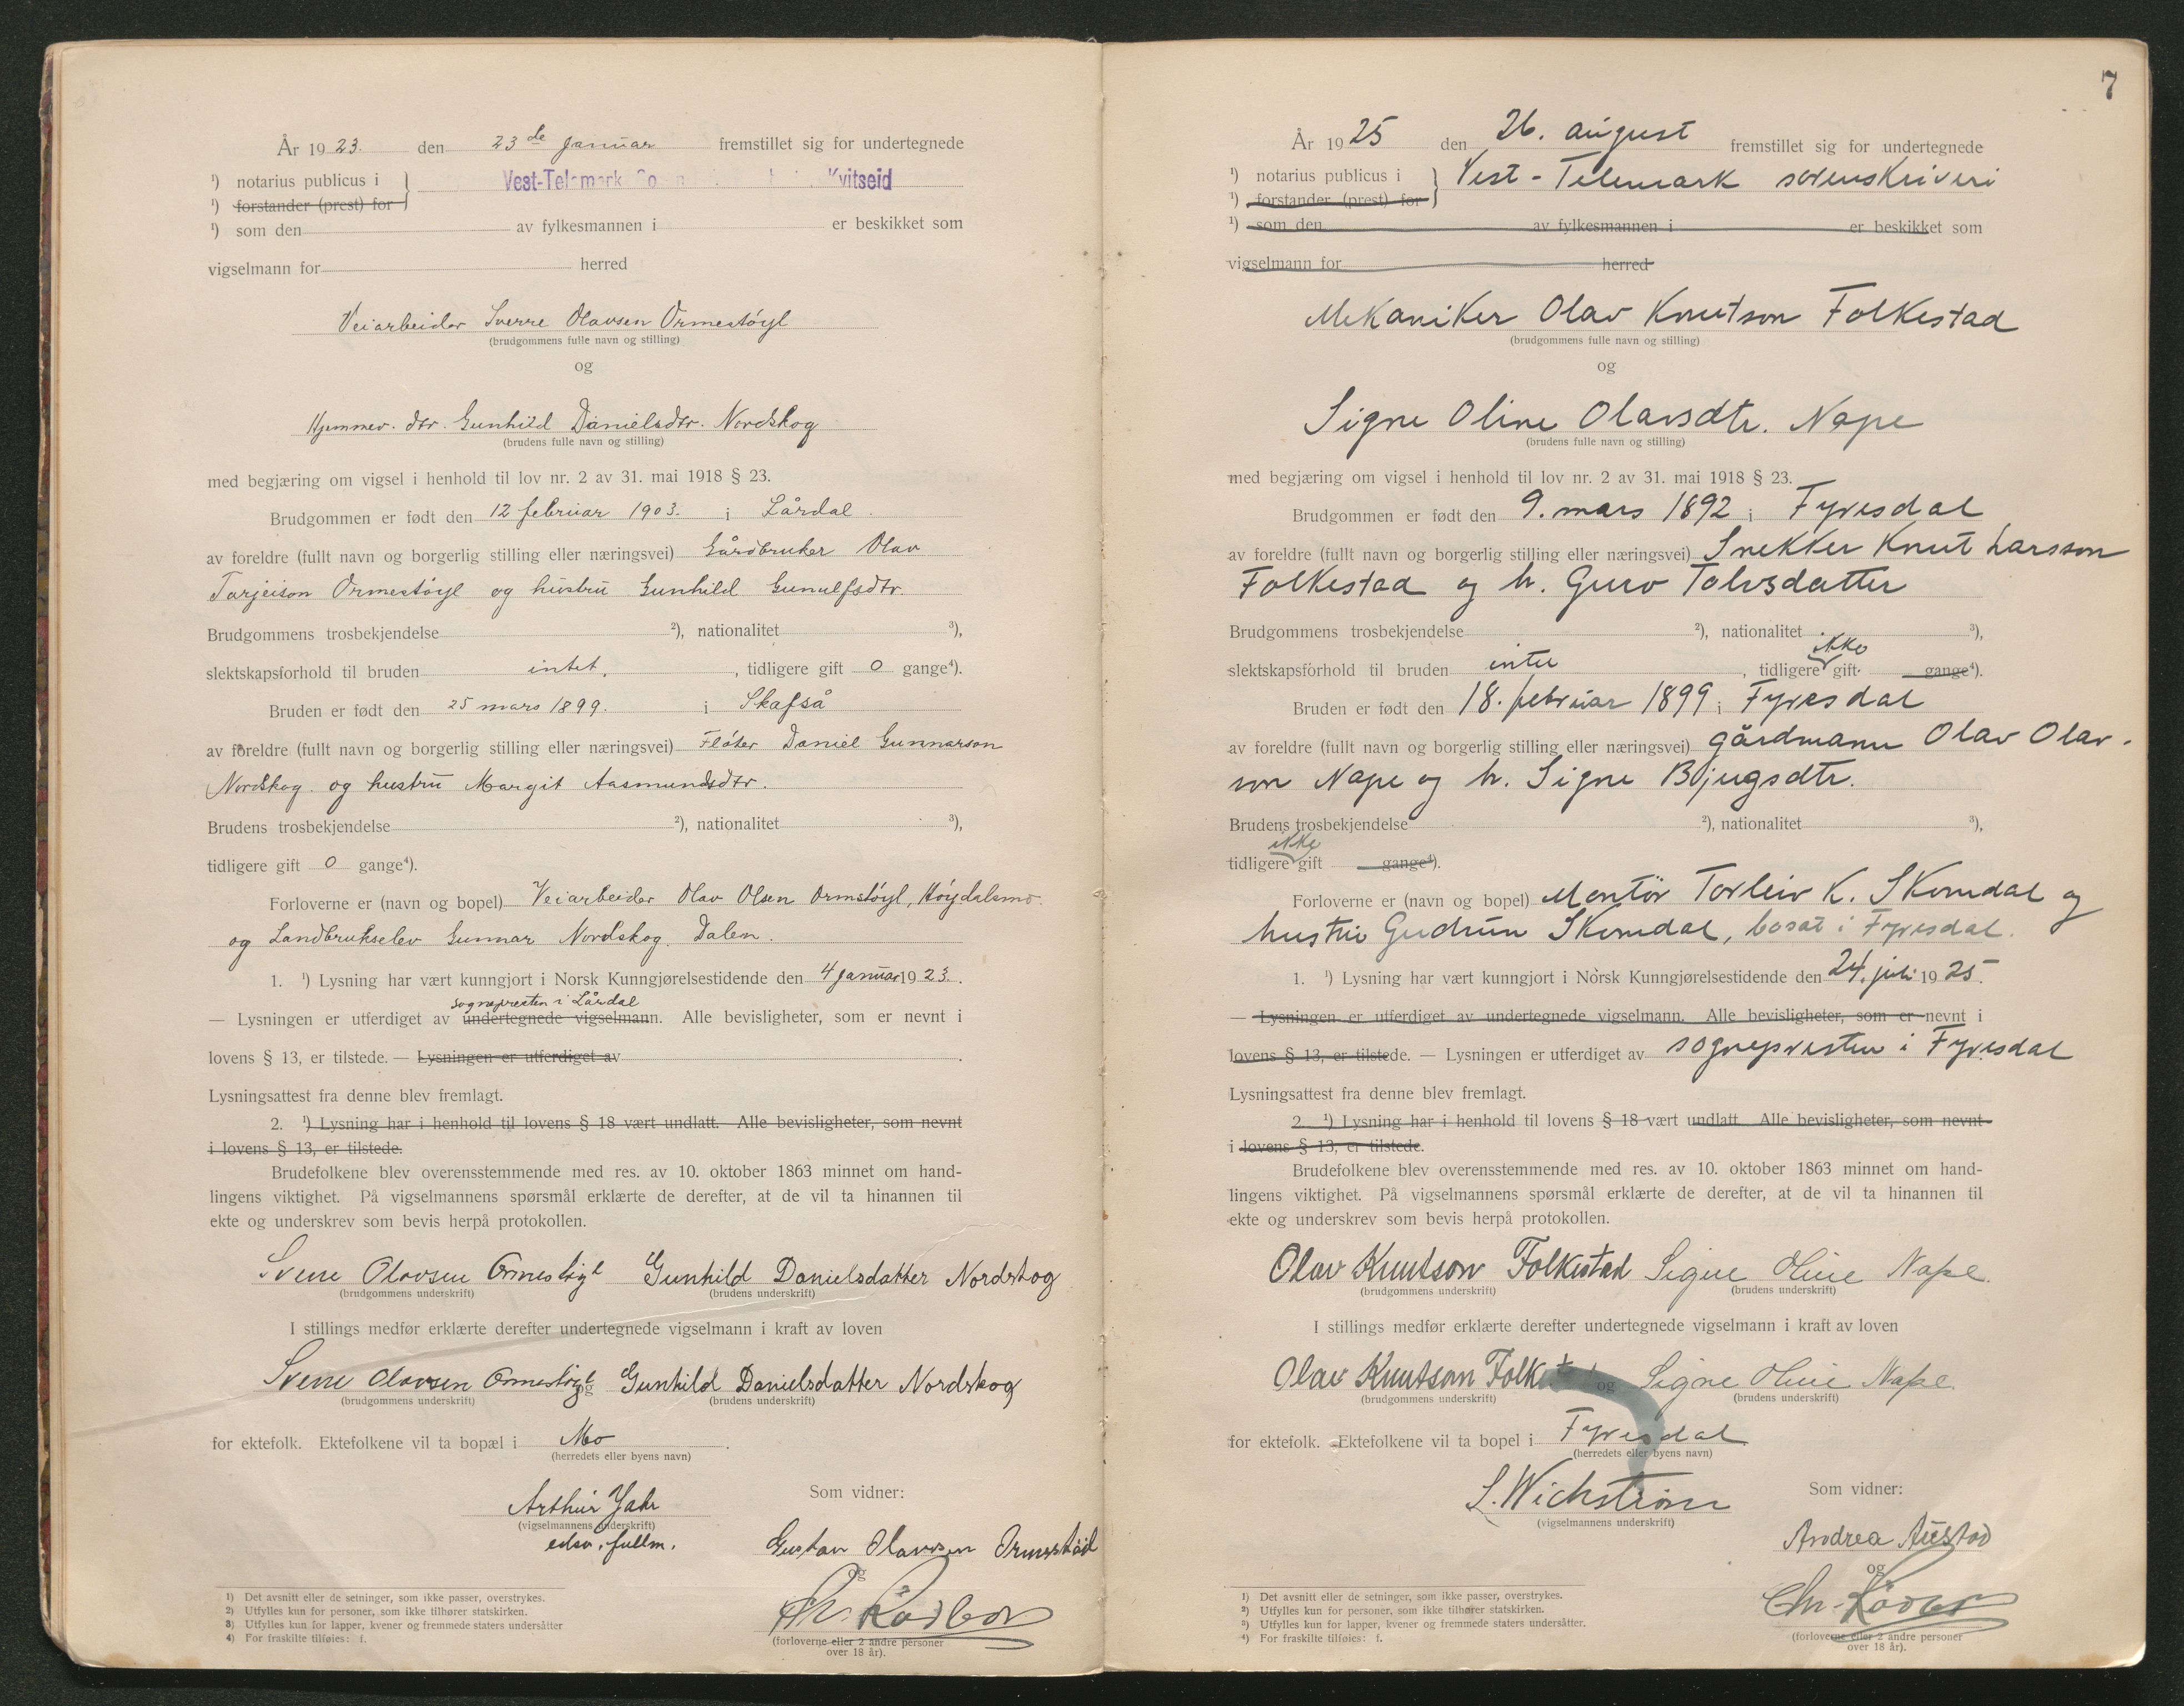 År 1923. den 23de Januar fremstillet sig for undertegnede
¹) notarius publicus i Vest-Telemark Kvitseid
¹) forstander (prest) for
¹) som den av fylkesmannen i er beskikket som
vigselmann for herred
Veiarbeider Sverre Olavsen Ormestöyl
(brudgommens fulle navn og stilling)
og
Hjemmev. dtr. Gunhild Danielsdtr. Nordskog
(brudens fulle navn og stilling)
med begjæring om vigsel i henhold til lov nr. 2 av 31. mai 1918 § 23.
Brudgommen er født den 12 februar 1903. i Lårdal.
av foreldre (fullt navn og borgerlig stilling eller næringsvei) Gårdbruker Olav
Tarjeison Ormestöyl og hustru Gunhild Gunulfsdtr.
Brudgommens trosbekjendelse ²), nationalitet ³),
slektskapsforhold til bruden intet, , tidligere gift 0 gange⁴).
Bruden er født den 25 mars 1899. i Skafså
av foreldre (fullt navn og borgerlig stilling eller næringsvei) Flöter Daniel Gunnarson
Nordskog og hustru Margit Aasmundsdtr.
Brudens trosbekjendelse ²), nationalitet ³),
tidligere gift 0 gange⁴).
Forloverne er (navn og bopel) Veiarbeider Olav Olsen Ormstöyl, Höydalsmo.
og Landbrukselev Gunnar Nordskog. Dalen.
1. ¹) Lysning har vært kunngjort i Norsk Kunngjørelsestidende den 4 Januar 1923.
sognepresten i Lårdal
— Lysningen er utferdiget av undertegnede vigselmann. Alle bevisligheter, som er nevnt i
lovens § 13, er tilstede. — Lysningen er utferdiget av .
Lysningsattest fra denne blev fremlagt.
2. ¹) Lysning har i henhold til lovens § 18 vært undlatt. Alle bevisligheter, som nevnt
i lovens § 13, er tilstede.
Brudefolkene blev overensstemmende med res. av 10. oktober 1863 minnet om hand-
lingens viktighet. På vigselmannens spørsmål erklærte de derefter, at de vil ta hinannen til
ekte og underskrev som bevis herpå protokollen.
Sverre Olavsen Ormestöyl Gunhild Danielsdatter Nordskog
(brudgommens underskrift) (brudens underskrift)
I stillings medfør erklærte derefter undertegnede vigselmann i kraft av loven
Sverre Olavsen Ormestöyl og Gunhild Danielsdatter Nordskog
(brudgommens underskrift) (brudens underskrift)
for ektefolk. Ektefolkene vil ta bopæl i Mo .
(herredets eller byens navn)
Arthur Jahr Som vidner:
(vigselmannens underskrift)
edsv. fullm. Gustav Olavsen Ormestöil
og
(forloverne eller 2 andre personer
over 18 år).
1) Det avsnitt eller de setninger, som ikke passer, overstrykes.
2) Utfylles kun for personer, som ikke tilhører statskirken.
3) Utfylles kun for lapper, kvener og fremmede staters undersåtter
4) For fraskilte tilføies: f.
7
År 1925 den 26. august fremstillet sig for undertegnede
¹) notarius publicus i Vest-Telemark sorenskriveri
¹) forstander (prest) for
¹) som den av fylkesmannen i er beskikket som
vigselmann for herred
Mekaniker Olav Knutson Folkestad
(brudgommens fulle navn og stilling)
og
Signe Oline Olavsdtr. Nape
(brudens fulle navn og stilling)
med begjæring om vigsel i henhold til lov nr. 2 av 31. mai 1918 § 23.
Brudgommen er født den 9. mars 1892 i Fyresdal
av foreldre (fullt navn og borgerlig stilling eller næringsvei) Snekker Knut Larsson
Folkestad og h. Guro Tolvsdatter
Brudgommens trosbekjendelse ²), nationalitet ³),
ikke
slektskapsforhold til bruden intet , tidligere gift gange⁴).
Bruden er født den 18. februar 1899 i Fyresdal
av foreldre (fullt navn og borgerlig stilling eller næringsvei) gårdmann Olav Olav-
son Nape og h. Signe Bjugsdtr.
Brudens trosbekjendelse ²), nationalitet ³),
ikke
tidligere gift gange⁴).
Forloverne er (navn og bopel) Montör Torleiv K. Skomdal og
hustru Gudrun Skomdal, bosat i Fyresdal.
1. ¹) Lysning har vært kunngjort i Norsk Kunngjørelsestidende den 24. juli 1925.
— Lysningen er utferdiget av undertegnede vigselmann. Alle bevisligheter, som er nevnt i
lovens § 13, er tilstede. — Lysningen er utferdiget av sognepresten i Fyresdal
Lysningsattest fra denne blev fremlagt.
2. ¹) Lysning har i henhold til lovens § 18 vært undlatt. Alle bevisligheter, som nevnt
i lovens § 13, er tilstede.
Brudefolkene blev overensstemmende med res. av 10. oktober 1863 minnet om hand-
lingens viktighet. På vigselmannens spørsmål erklærte de derefter, at de vil ta hinannen til
ekte og underskrev som bevis herpå protokollen.
Olav Knutson Folkestad Signe Oline Nape.
(brudgommens underskrift) (brudens underskrift)
I stillings medfør erklærte derefter undertegnede vigselmann i kraft av loven
Olav Knutson Folkestad og Signe Oline Nape.
(brudgommens underskrift) (brudens underskrift)
for ektefolk. Ektefolkene vil ta bopel i Fyresdal
(herredets eller byens navn)
S. Wichstrøm Som vidner:
(vigselmannens underskrift)
Andrea Austad
og
Chr.
(forloverne eller 2 andre personer
over 18 år).
1) Det avsnitt eller de setninger, som ikke passer, overstrykes.
2) Utfylles kun for personer, som ikke tilhører statskirken.
3) Utfylles kun for lapper, kvener og fremmede staters undersåtter.
4) For fraskilte tilføies: f.